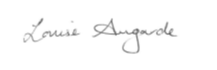 Louise Augarde